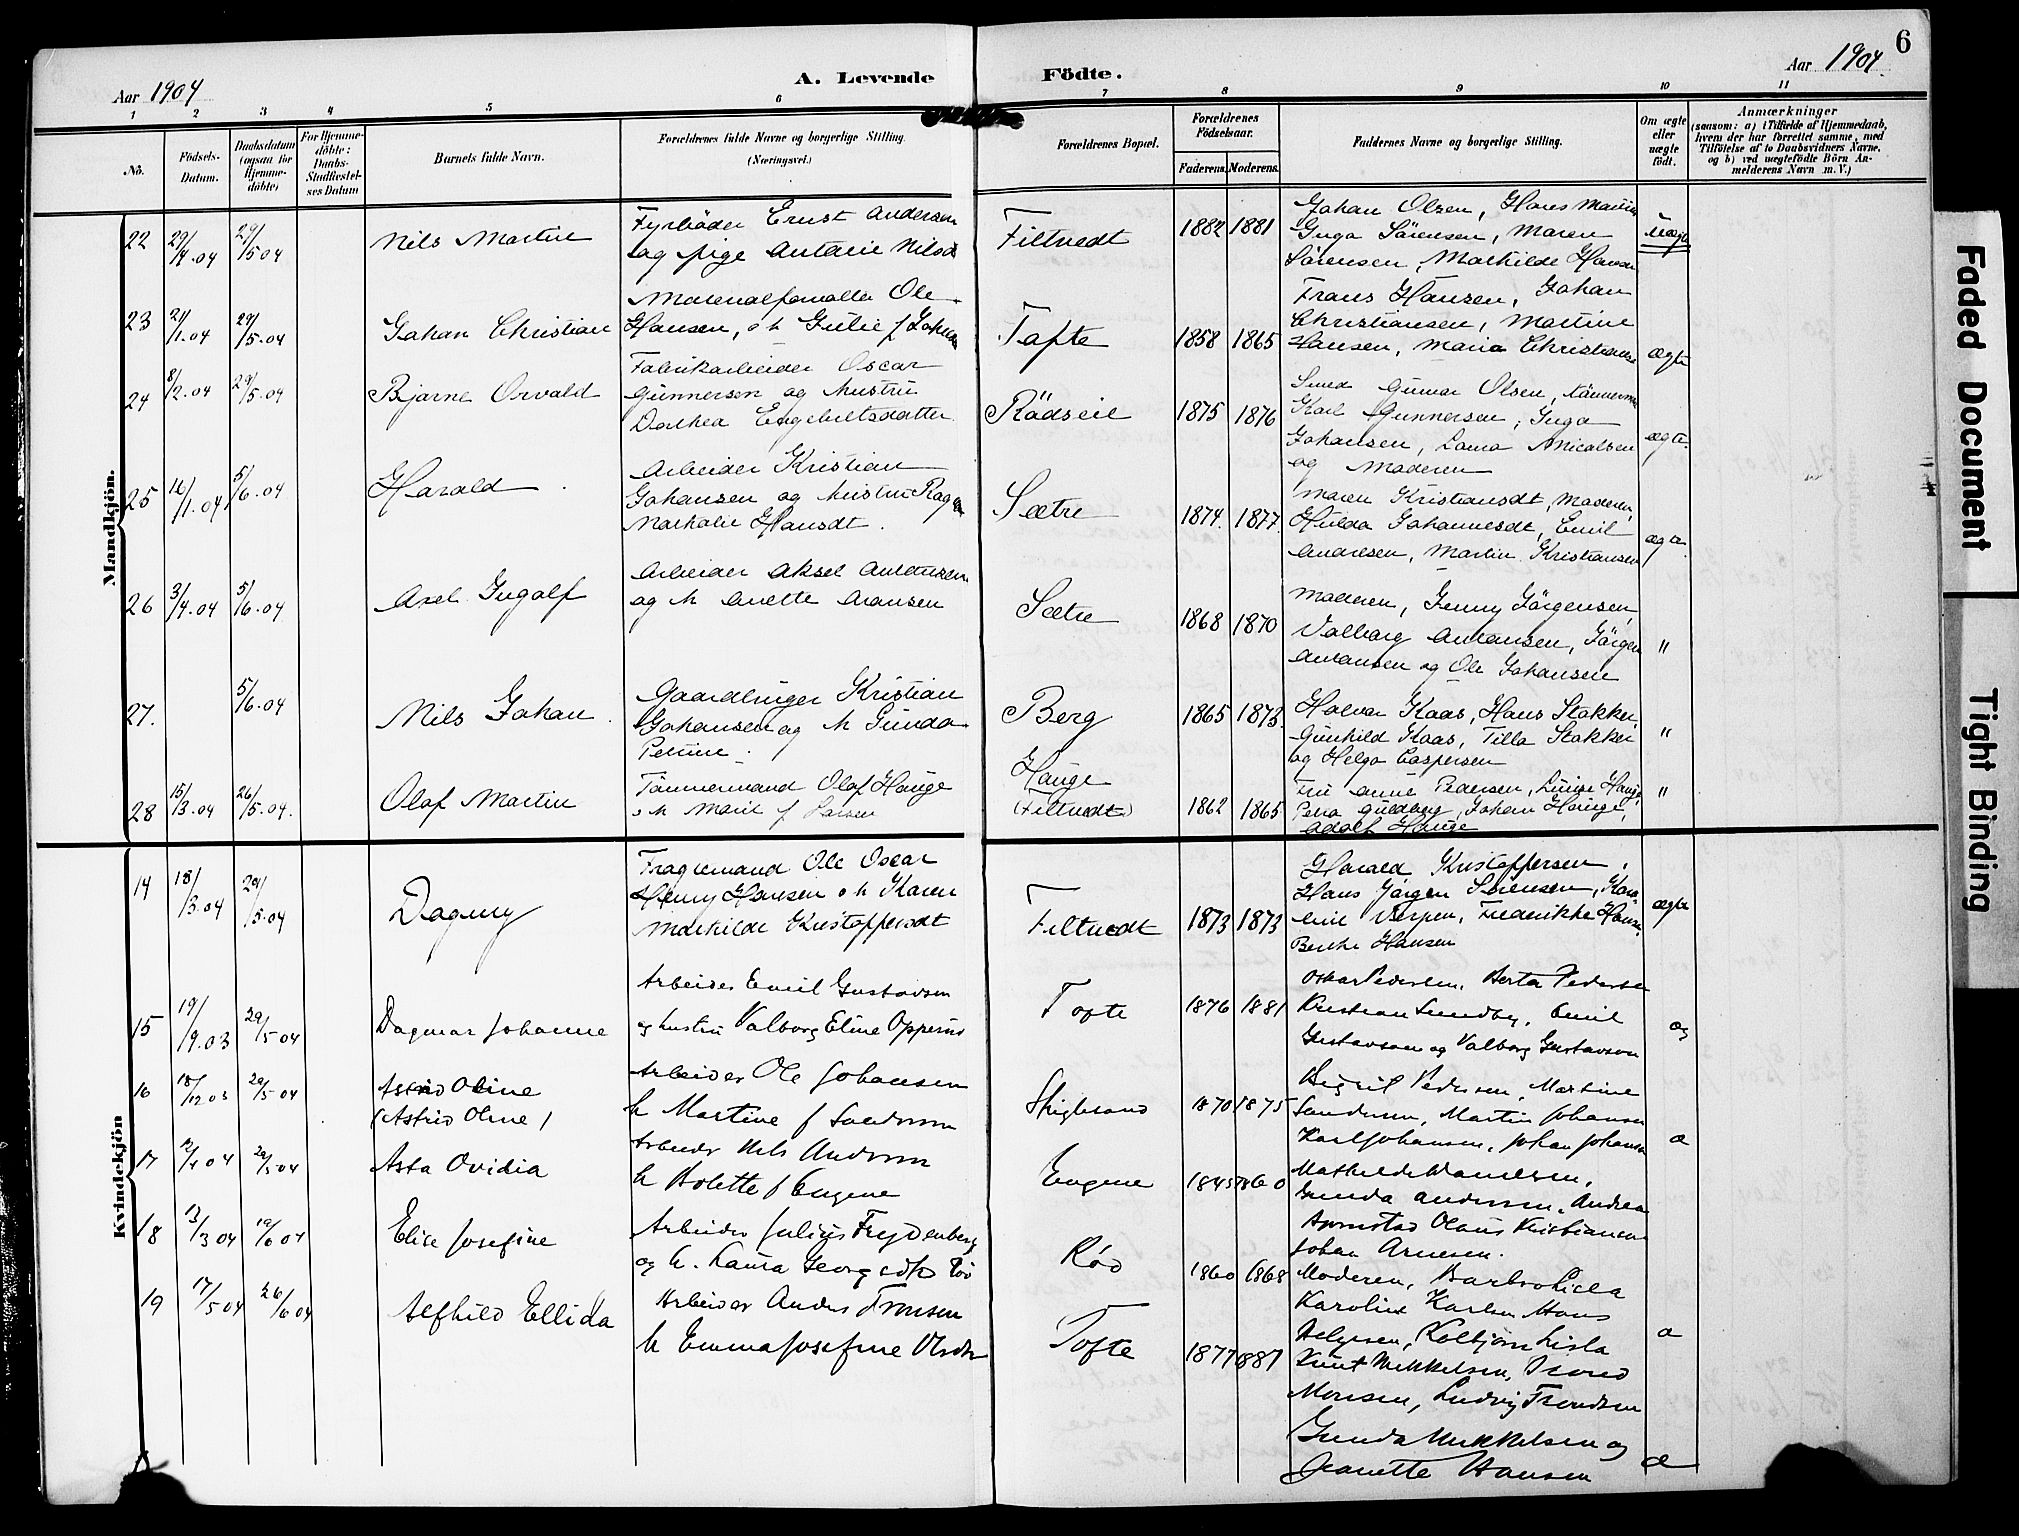 6
Aar 1904
A. Levende
Födte.
Aar 1904.
1 2 3 4 5 6 7 8 9 10 11
No.
Födsels-
Datum.
Daabsdatum
(ogsaa for
Hjemme-
döbte)
For Hjemme-
döbte:
Daabs-
Stadfæstel-
ses Datum
Barnets fulde Navn.
Forældrenes fulde Navne og borgerlige Stilling.
(Næringsvei.)
Forældrenes Bopæl.
Forældrenes
Födselsaar.
Faderens. Moderens.
Faddernes Navne og borgerlige Stilling.
Om ægte
eller
uægte
födt.
Anmærkninger
(saasom: a) i Tilfælde af Hjemmedaab,
hvem der har forrettet samme, med
Tilföielse af to Daabsvidners Navne,
og b) ved uægtefödte Börn An-
melderens Navn m. V.)
Mandkjön.
22 29/4.04 29/5 04 Nils Martin
Fyrböder Ernst Andersen
og pige Antarie Nilsd
Filtvedt 1882 1881
Johan Olsen, Hans
Inga Sörensen, Maren
Sörensen, Mathilde Hansen
uægte
23 21/1.04 29/5.04 Johan Christian
Materialforvalter Ole
Hansen, o h Julie f Johns
Tofte 1858 1865
Frans Hansen, Johan
Christiansen, Martine
Hansen, Maria Christiansen
ægte
24 8/2.04 29/5.04 Bjarne Osvald
Fabrikarbeider Oscar
Gunnersen og hustru
Dorthea Engebretsdatter
Rödseil 1875 1876
Smed Gunnar Olsen, tömmerm
Karl Gunnersen, Inga
Johansen, Laura Micalsen
og Moderen
ægte.
25 16/1.04 5/6.04 Harald
Arbeider Kristian
Johansen og hustru Ragna
Nathalie Hansdt.
Sætre 1874. 1877.
Maren Kristiansdt, Moderen,
Hulda Johannesdt, Emil
Andresen, Martin Kristiansen
ægte.
26 3/4.04 5/6.04 Axel Ingolf
Arbeider Aksel Antonsen
og h Anette Aronsen
Sætre 1868 1870
Moderen, Jenny Jörgensen,
Valborg Antonsen, Jörgen
Antonsen og Ole Johansen
"
27. 5/6.04 Nils Johan
Gaardbruger Kristian
Johansen og h Gunda
Petrine
Berg 1865 1873
Halvor Kaas, Hans Stokker,
Gunhild Kaas, Tilla Stokker
og Helga Caspersen
"
28 15/3.04 26/5.04. Olaf Martin
Tömmermand Olaf Hauge
o h Marit f Larsen
Hauge
(Filtvedt) 1862 1865
Fru Anne Pedersen, Louise Hauge,
Petra Guldberg, Johan Hauge,
Adolf Hauge
"
Kvindekjön
14 18/3.04 29/5.04 Dagny
Fragtemand Ole Oscar
Henry Hansen o h Karen
Mathilde Kristoffersdt
Filtvedt 1873 1873
Harald Kristoffersen,
Hans Jörgen Sörensen, Karo-
line Vespen, Frederikke Hansen,
Berthe Hansen
ægte
15 19/9.03 29/5 04 Dagmar Johanne
Arbeider Emil Gustavsen
og hustru Valborg Eline
Tofte 1876 1881
Oskar Pedersen, Berta Pedersen
Kristian Sundby, Emil
Gustavson og Valborg Gustavson
æg
16 18/12 03 29/5 04 Astrid Oline
(Astrid Oline)
Arbeider Ole Johansen
h Martine f
1870 1875
Sigrid Pedersen, Martine
Martin Johansen
Karl Johansen, Johan Johansen
æ
17 12/4 04 29/5 04 Asta Ovidia
Arbeider Nils Andersen
h Bolette f Engene
Engene 1845 1860
Mathilde Danielsen,
Gunda Andersen, Andrea
Olaus Kristiansen
Johan Arnesen.
18 13/3 04 19/6 04 Elise Josefine
Arbeider Julius Frydenberg
og h. Laura
Rød 1860 1868
Moderen, Barbro Lisla
Karoline Karlsen Hans
Helgesen, Kolbjørn Lisla
æ
19 17/5 04 26/6 04 Alfhild Ellida
Arbeider Anders Tronsen
h Emma Josefine Olsdtr
Tofte 1877 1881
Knut Mikkelsen,
Monsen, Ludvig Trondsen
Gunda Mikkelsen og
Jeanette Hansen
æ
Faded Document
Tight Binding